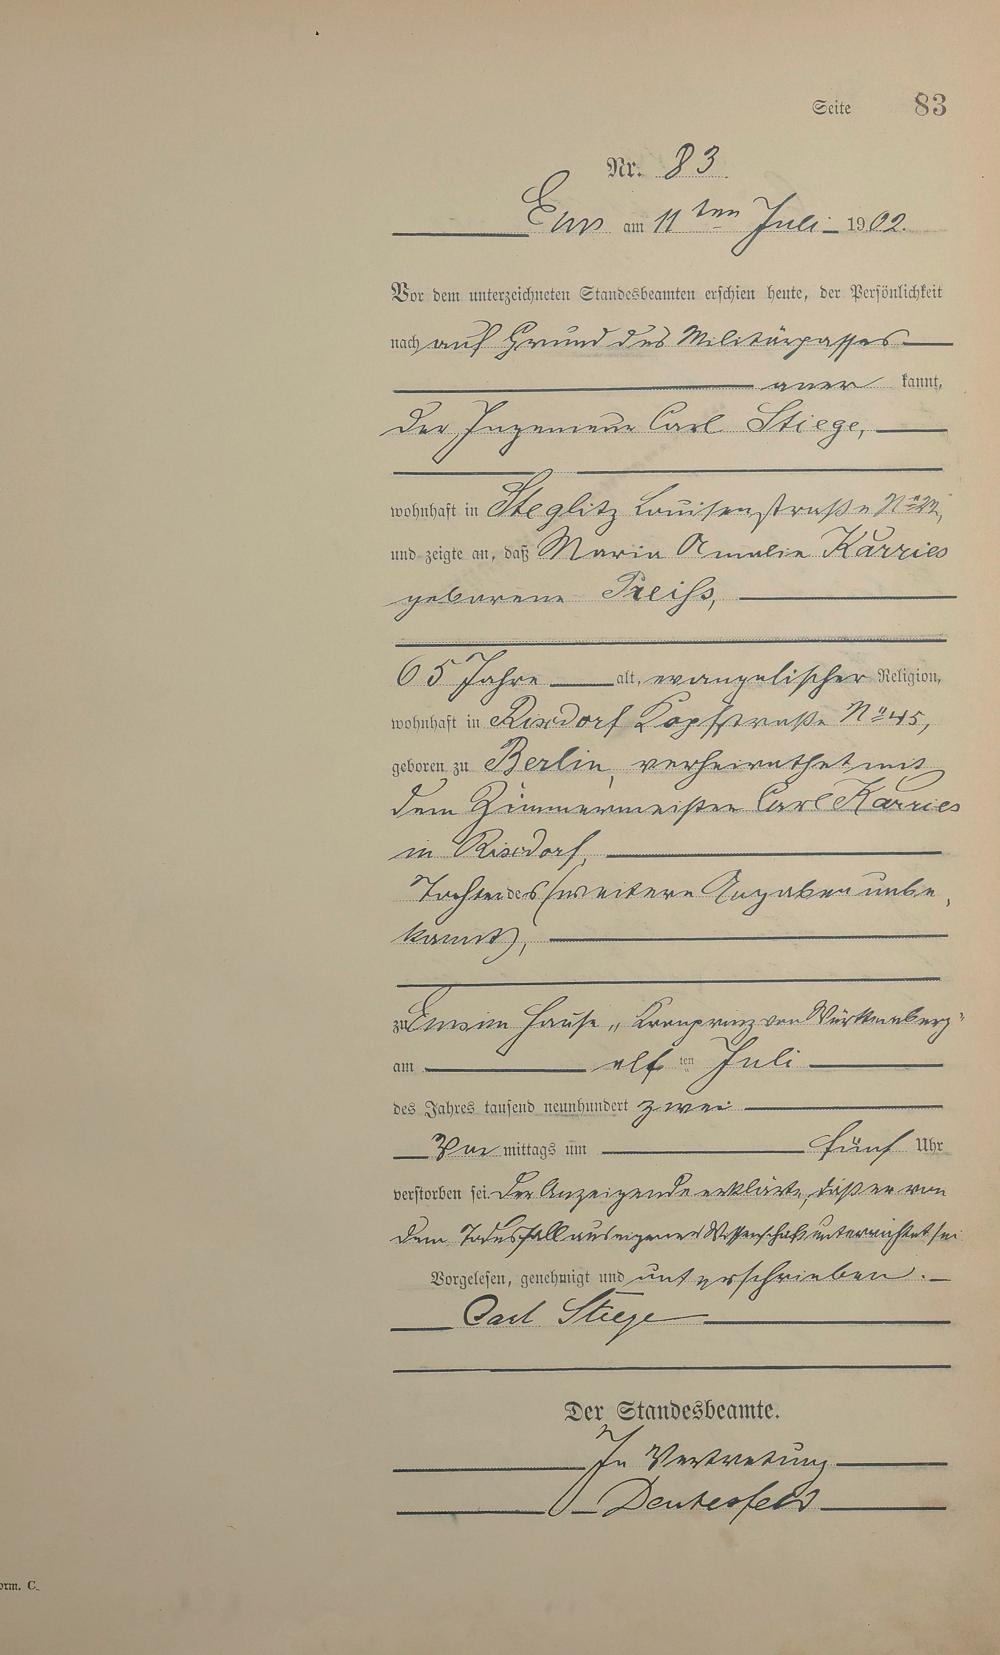 Seite 83
Nr. 83.
Ems am 11ten Juli 1902.
Vor dem unterzeichneten Standesbeamten erschien heute, der Persönlichkeit
nach auf Grund des Militärpasses
aner kannt,
der Ingenieur Carl Stiege,
wohnhaft in Steglitz Louisenstraße No
und zeigte an, daß Maria Amalie Karries
geborene Preiß,
65 Jahre alt, evangelischer Religion,
wohnhaft in Rixdorf Kopfstraße No 45,
geboren zu Berlin, verheirathet mit
dem Zimmermeister Carl Karries
in Rixdorf,
Tochter des (weitere Angaben unbe,
kannt),
zu Ems im Hause „Kronprinz von Württemberg"
am elf ten Juli
des Jahres tausend neunhundert zwei
Vor mittags um fünf Uhr
verstorben sei. Der Anzeigende erklärte, daß er von
dem Todesfall aus eigener Wissenschaft unterrichtet sei
Vorgelesen, genehmigt und unterschrieben.
Carl Stiege
Der Standesbeamte.
In Vertretung
orm. C.